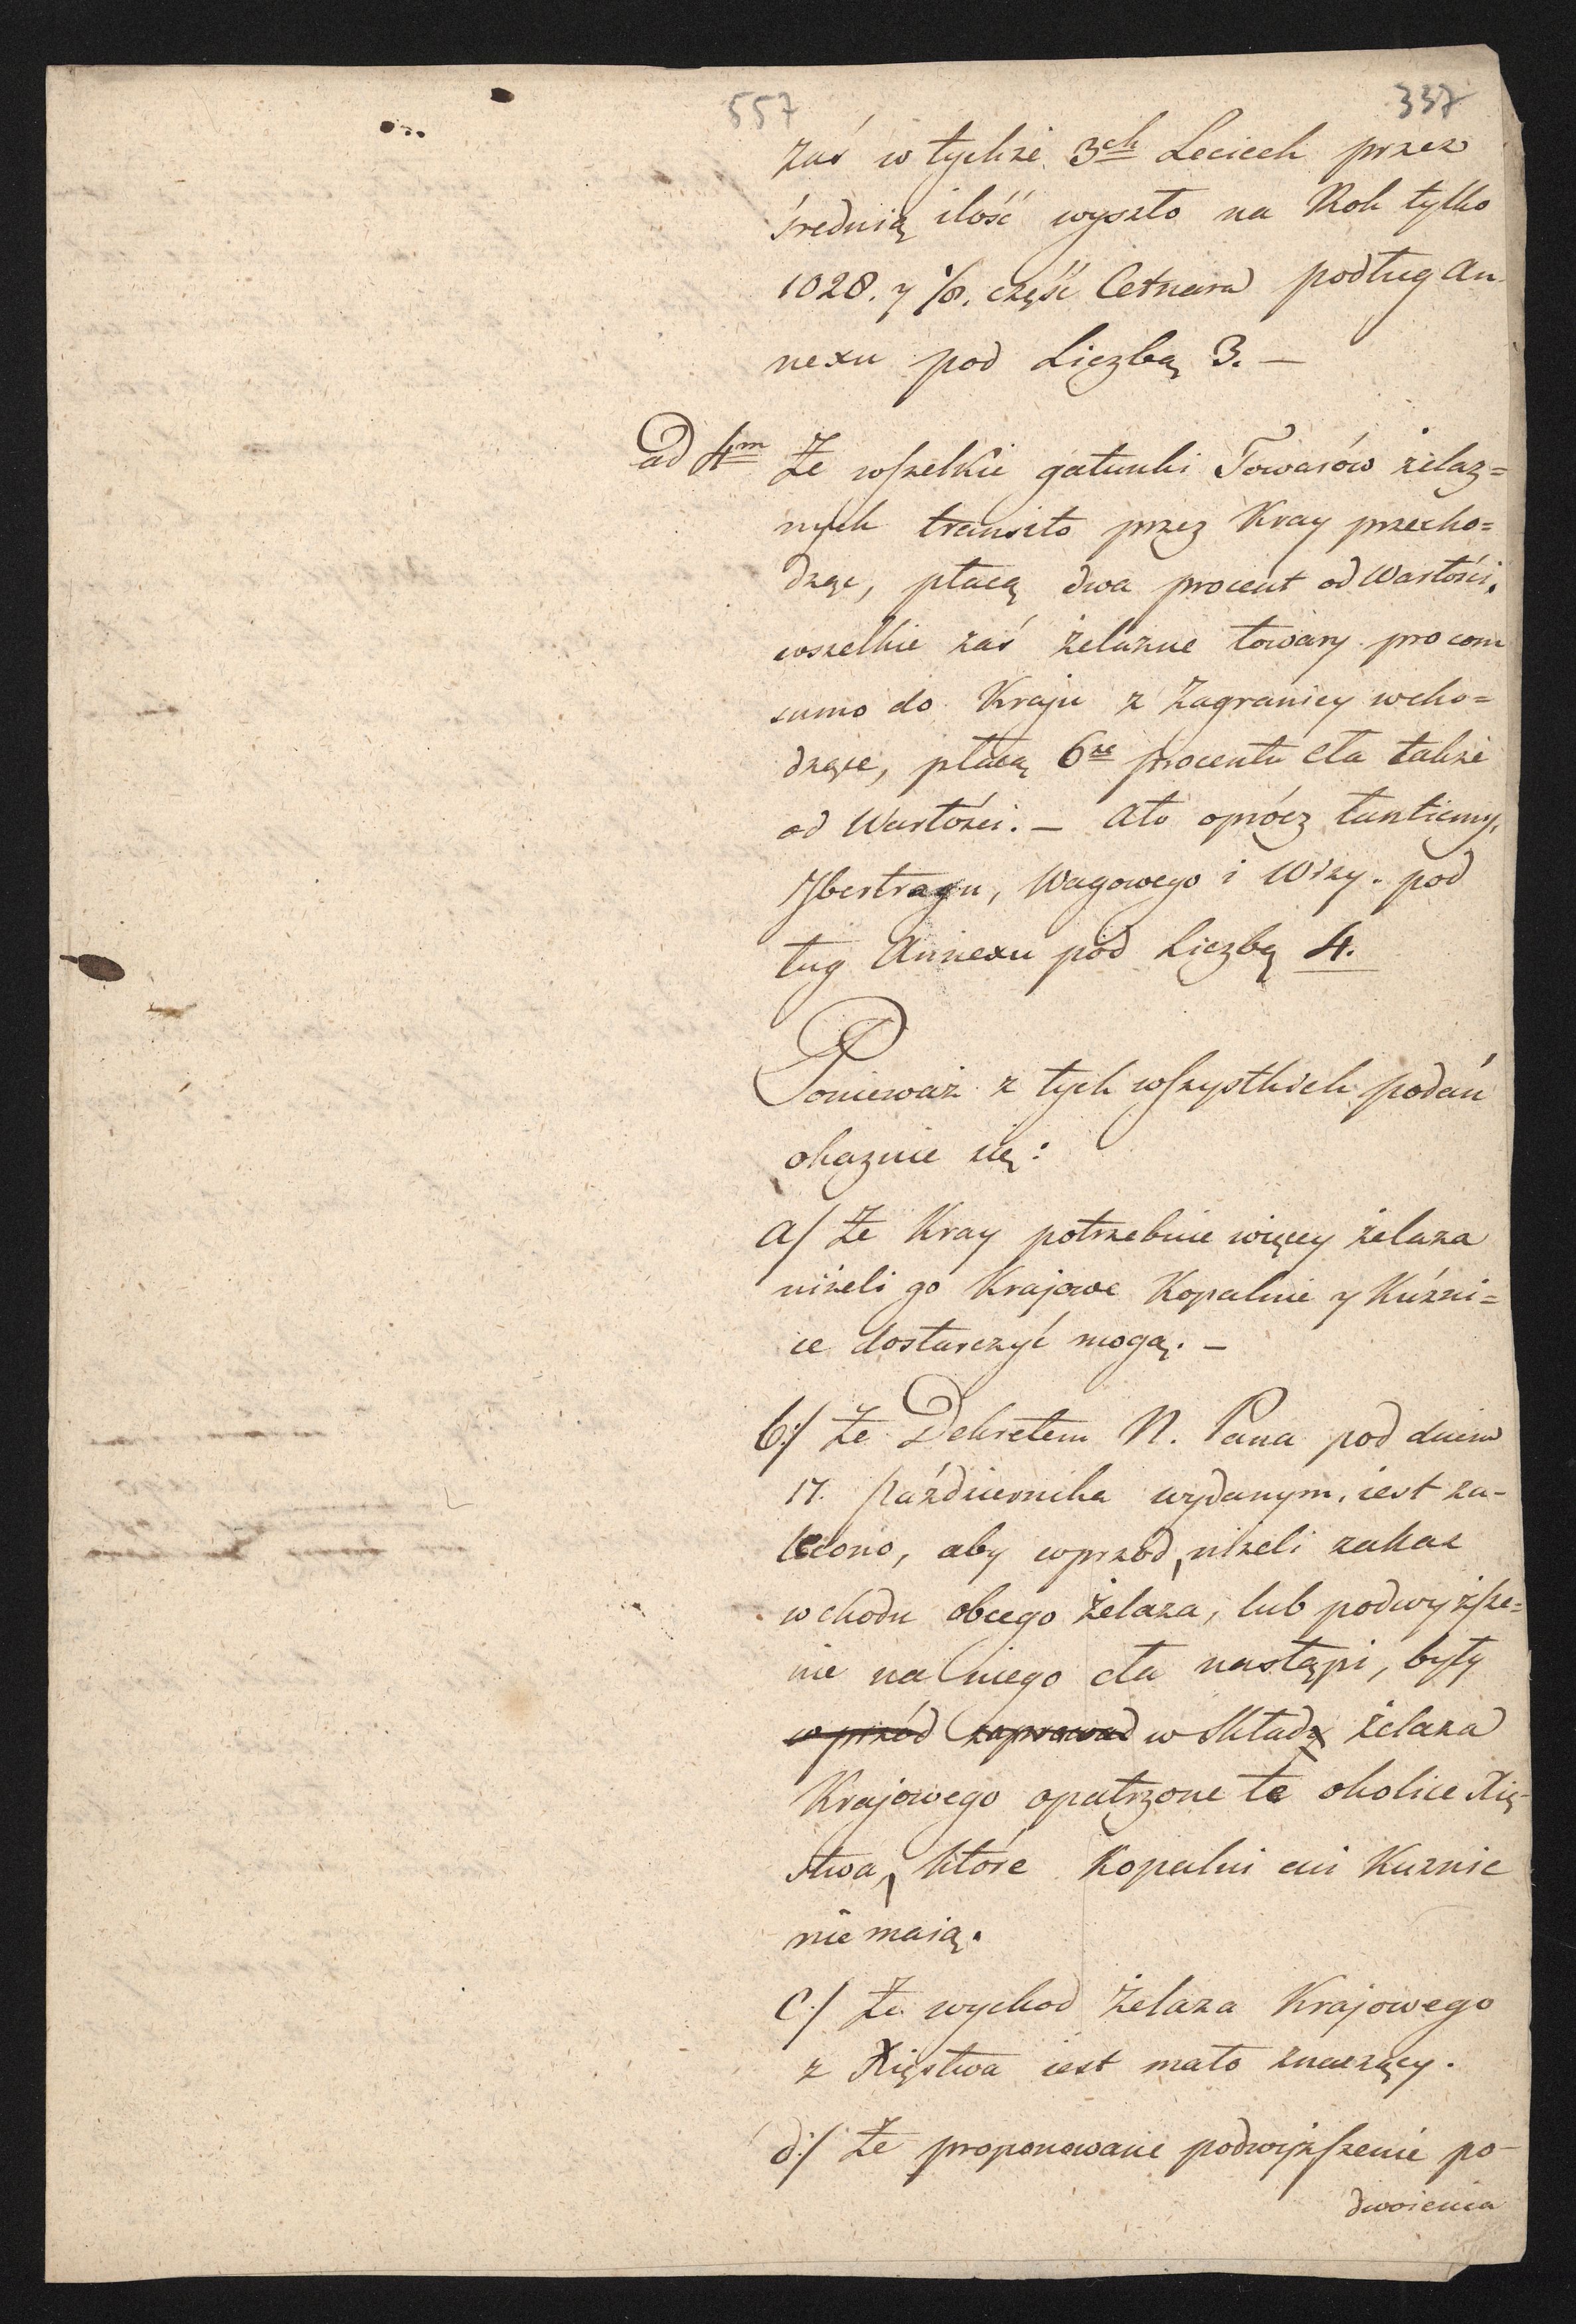 557 337
zaś w tychże 3ch Leciech przez
średnią ilość wyszło na Rok tylko
1028. y 1/8. część Cetnara podług An-
nexu pod Liczbą 3. —
ad 4m Że wszelkie gatunki Towarów żelaz=
nych transito przez Kray przecho=
dzące, płacą dwa procent od Wartości.
wszelkie zaś żelazne towary pro con
sumo do Kraju z Zagranicy wcho=
dzące, płacą 6ze procentu cła także
od Wartości. — Ato oprócz tantiemy,
Ybertragu, Wagowego i Wizy. pod
ług Annexu pod Liczbą 4.
Ponieważ z tych wszystkich podań
okazuie się:
a/ Że Kray potrzebuie więcey żelaza
niżeli go Krajowe Kopalnie y Kuźni=
ce dostarczyć mogą. —
b:/ Że Dekretem N. Pana pod dniem
17. Października wydanym, iest za-
lecono, aby wprzód, niżeli zakaz
wchodu obcego żelaza, lub podwyższe=
nie na niego cła nastąpi, były
wprzód zaprowad w składy żelaza
Krajowego opatrzone te okolice Xię-
stwa, które Kopalni ani Kuznic
nie maią.
c:/ Że wychod Żelaza Krajowego
z Xięstwa iest mało znaczący.
d:/ Że proponowane podwyższenie po-
dwoienia